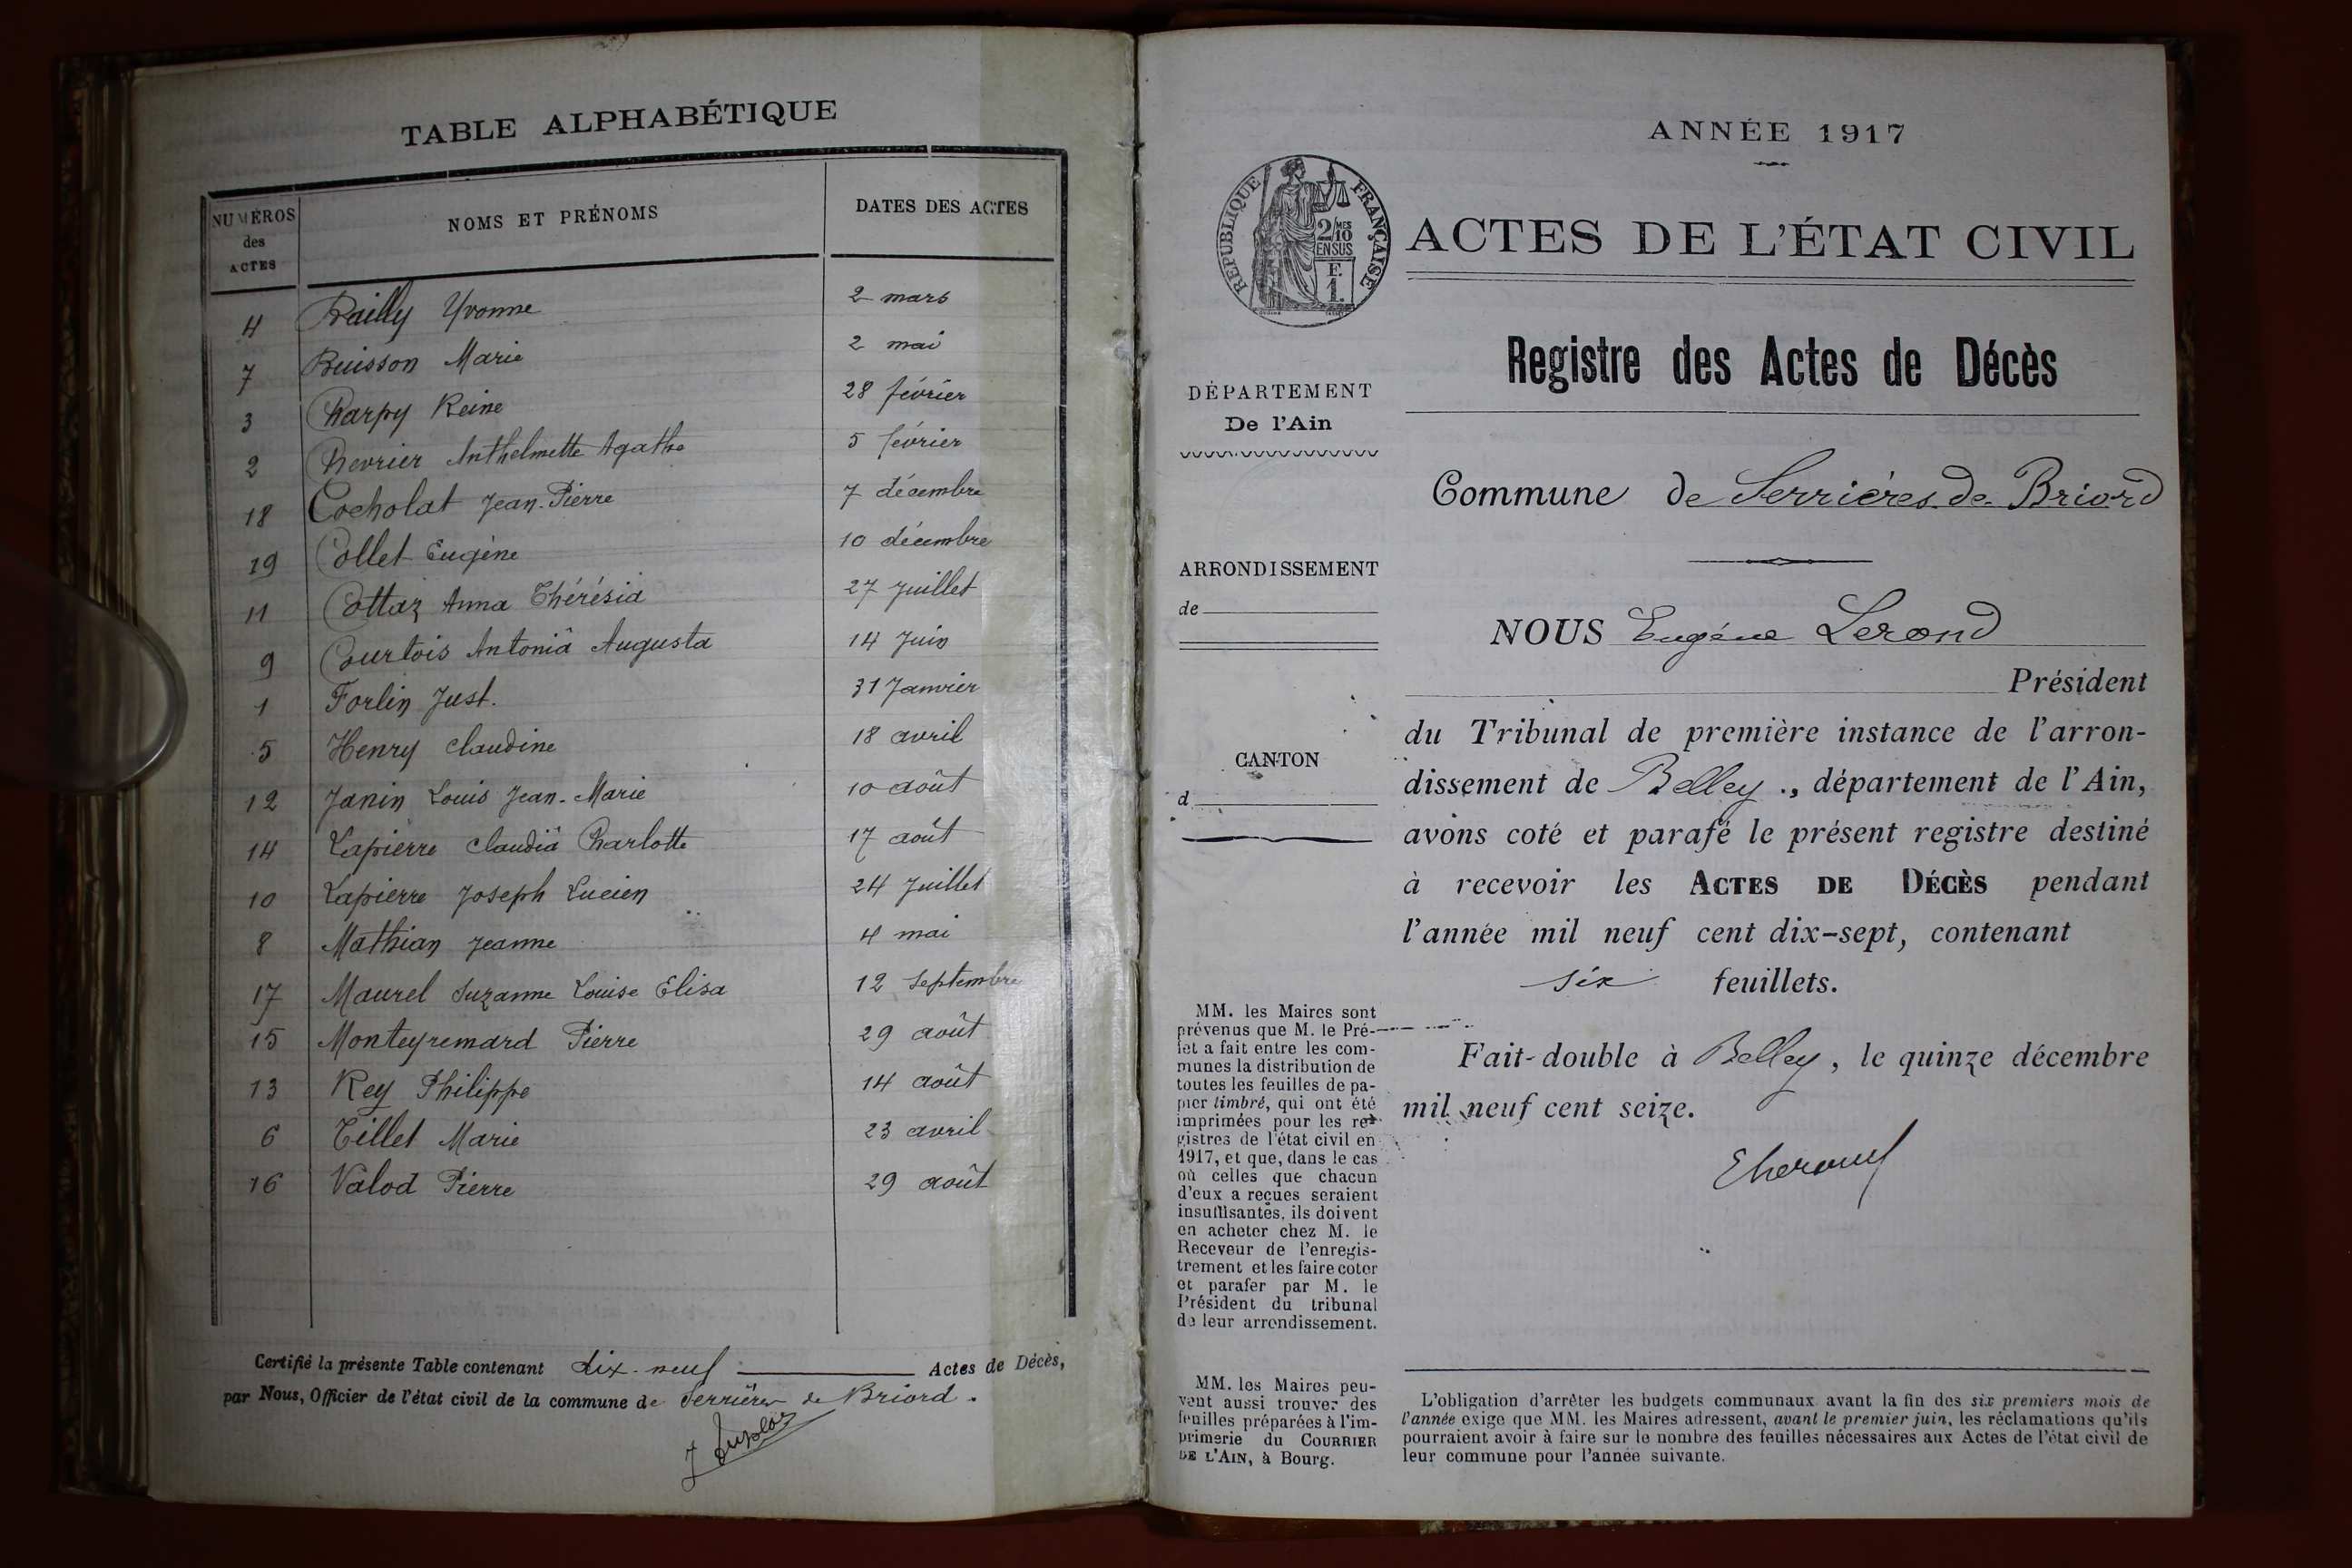 TABLE ALPHABÉTIQUE
NUMÉROS des ACTES NOMS ET PRÉNOMS DATES DES ACTES
4 Bailly Yvonne 2 mars
7 Buisson Marie 2 mai
3 Charpy Reine 28 février
2 Chevrier Anthelmette Agathe 5 février
18 Cocholat Jean-Pierre 7 décembre
19 Collet Eugène 10 décembre
11 Cottaz Anna Thérésia 27 Juillet
9 Courtois Antonia Augusta 14 Juin
1 Forlin Just. 31 Janvier
5 Henry Claudine 18 avril
12 Janin Louis Jean-Marie 10 août
14 Lapierre Claudia Charlotte 17 août
10 Lapierre Joseph Lucien 24 Juillet
8 Mathian Jeanne 4 mai
17 Maurel Suzanne Louise Elisa 12 Septembre
15 Monteyremard Pierre 29 août
13 Rey Philippe 14 août
6 Tillet Marie 23 avril
16 Valod Pierre 29 août
Certifié la présente Table contenant dix-neuf Actes de Décès,
par Nous, Officier de l'état civil de la commune de Serrières de Briord.
ANNÉE 1917
RÉPUBLIQUE FRANÇAISE
2/10 MES
EN SUS
F.
1.
ACTES DE L'ÉTAT CIVIL
Registre des Actes de Décès
DÉPARTEMENT
De l'Ain
Commune de Serrières-de-Briord
ARRONDISSEMENT
de
NOUS Eugène Lerond
Président
du Tribunal de première instance de l'arron-
dissement de Belley., département de l'Ain,
avons coté et parafé le présent registre destiné
à recevoir les ACTES DE DÉCÈS pendant
l'année mil neuf cent dix-sept, contenant
six feuillets.
Fait double à Belley, le quinze décembre
mil neuf cent seize.
CANTON
d
MM. les Maires sont
prévenus que M. le Pré-
fet a fait entre les com-
munes la distribution de
toutes les feuilles de pa-
pier timbré, qui ont été
imprimées pour les re-
gistres de l'état civil en
1917, et que, dans le cas
où celles que chacun
d'eux a reçues seraient
insuffisantes, ils doivent
en acheter chez M. le
Receveur de l'enregis-
trement et les faire coter
et parafer par M. le
Président du tribunal
de leur arrondissement.
MM. les Maires peu-
vent aussi trouver des
feuilles préparées à l'im-
primerie du COURRIER
DE L'AIN, à Bourg.
L'obligation d'arrêter les budgets communaux avant la fin des six premiers mois de
l'année exige que MM. les Maires adressent, avant le premier juin, les réclamations qu'ils
pourraient avoir à faire sur le nombre des feuilles nécessaires aux Actes de l'état civil de
leur commune pour l'année suivante.